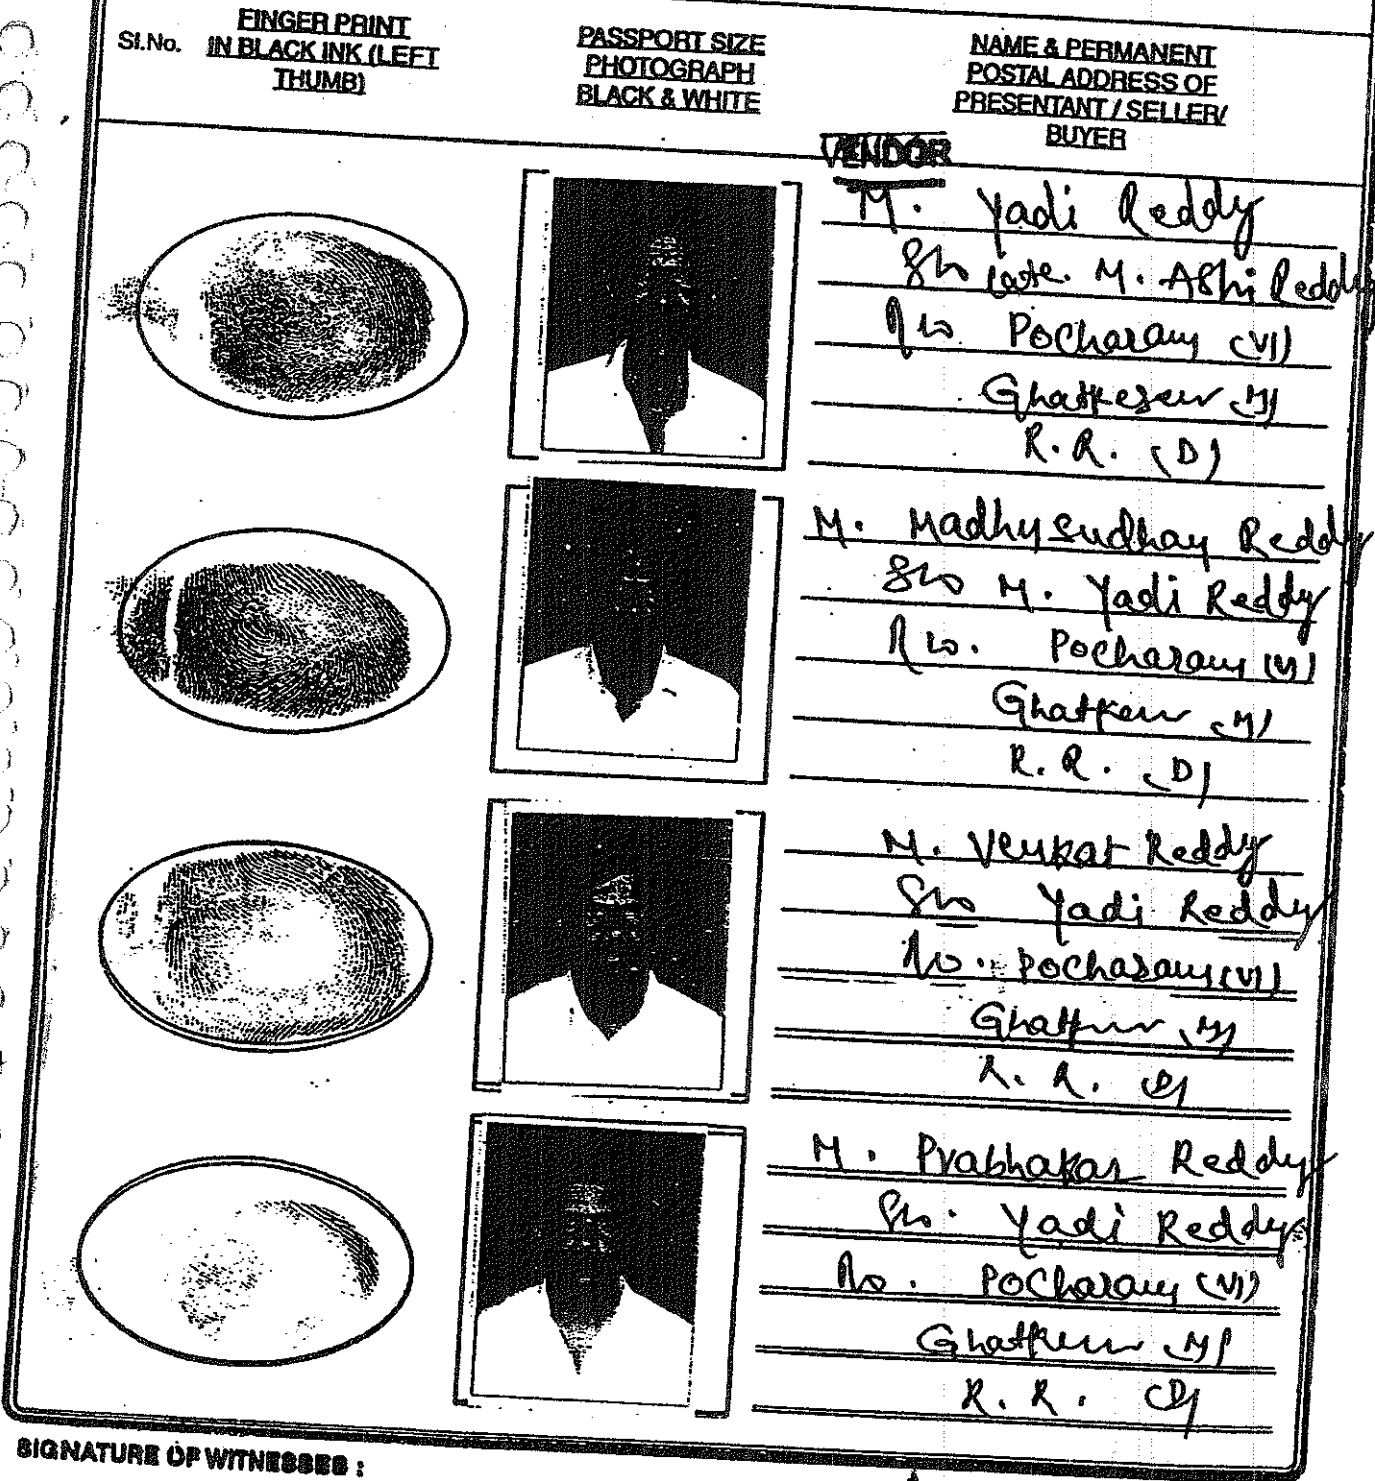 Sl.No.
FINGER PRINT
IN BLACK INK (LEFT
THUMB)
PASSPORT SIZE
PHOTOGRAPH
BLACK & WHITE
NAME & PERMANENT
POSTAL ADDRESS OF
PRESENTANT / SELLER/
BUYER
VENDOR
M. Yadi Reddy
S/o Late. M. Ashi Reddy
R/o Pocharam (V)
Ghatkesar (M)
R.R. (D)
M. Madhusudhan Reddy
S/o M. Yadi Reddy
R/o. Pocharam (V)
Ghatkesar (M)
R.R. (D)
M. Venkat Reddy
S/o Yadi Reddy
R/o. Pocharam (V)
Ghatkesar (M)
R.R. (D)
M. Prabhakar Reddy
S/o. Yadi Reddy
R/o. Pocharam (V)
Ghatkesar (M)
R.R. (D)
SIGNATURE OF WITNESSES :